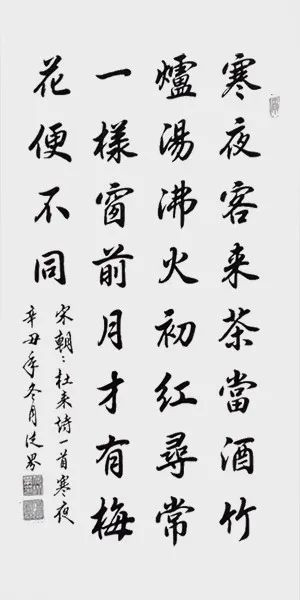 寒夜客来茶當酒竹
爐湯沸火初紅尋常
一樣窗前月才有梅
花便不同
宋朝：杜耒詩一首寒夜
辛丑年冬月